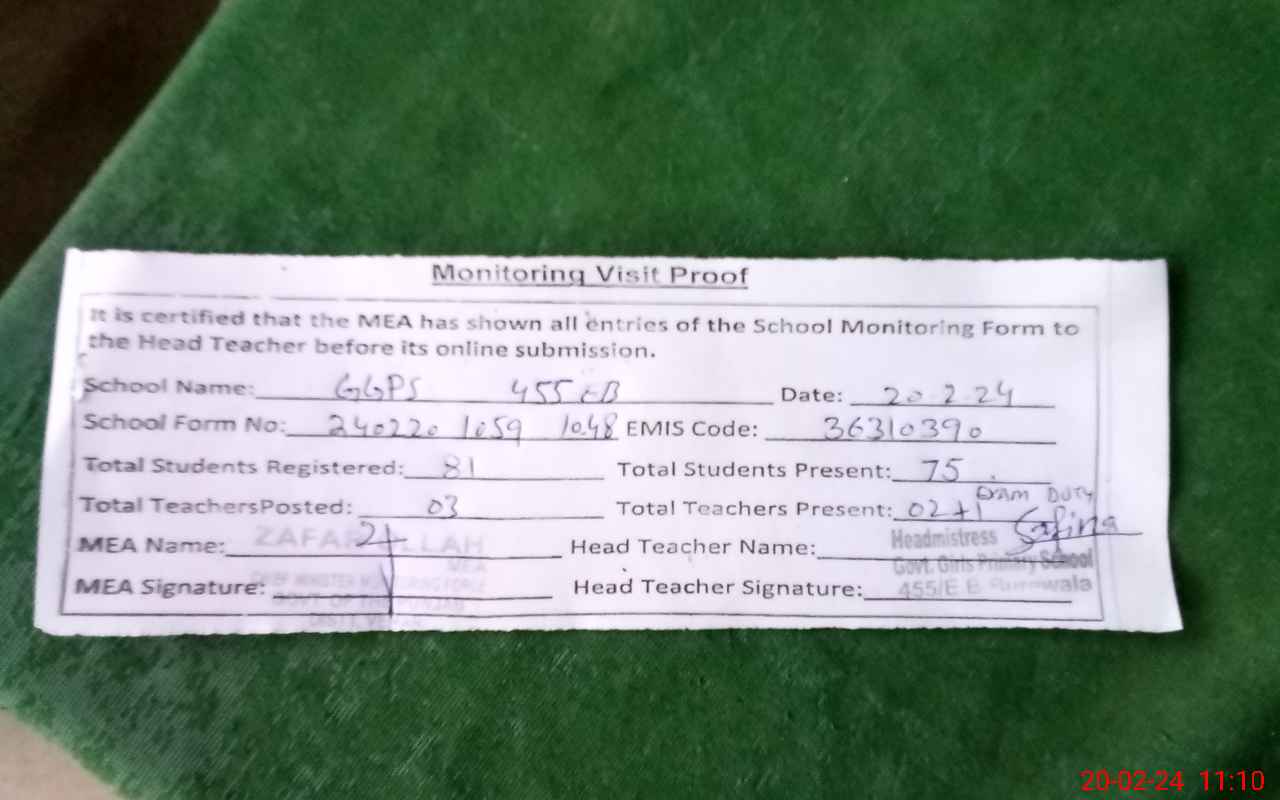 Monitoring Visit Proof
It is certified that the MEA has shown all entries of the School Monitoring Form to
the Head Teacher before its online submission.
School Name: GGPS 455 EB Date: 20-2-24
School Form No: 240220 1059 1048 EMIS Code: 36310390
Total Students Registered: 81 Total Students Present: 75
Total TeachersPosted: 03 Total Teachers Present: 02+1 Exam DUTY
MEA Name: ZAFAR ULLAH Head Teacher Name: Headmistress Safina
MEA
Govt. Girls Primary School
MEA Signature: CHIEF MINISTER MONITORING FORCE Head Teacher Signature: 455/E.B Burewala
GOVT. OF THE PUNJAB
20-02-24 11:10